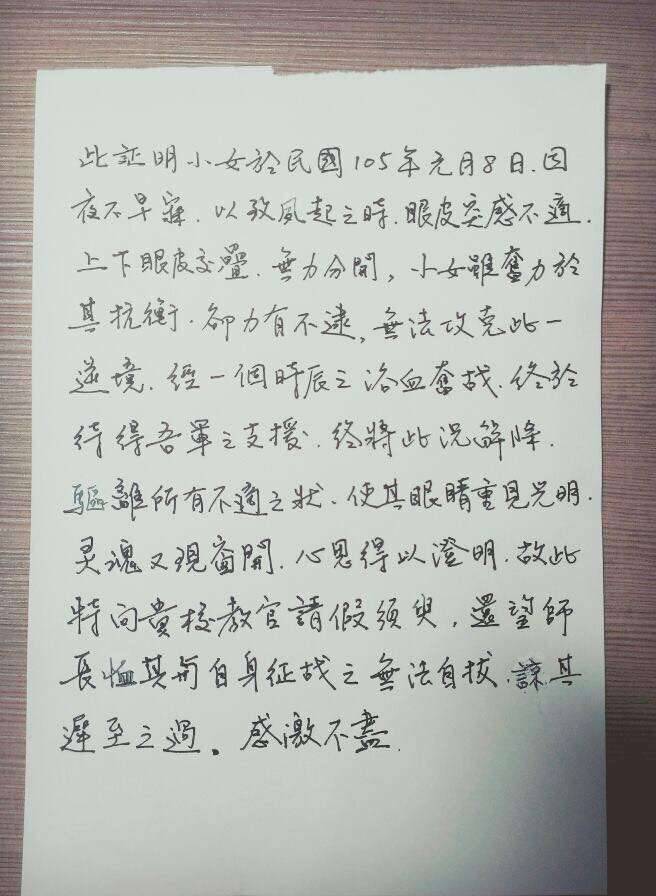 此証明小女於民國105年元月8日.因
夜不早寐.以致風起之時.眼皮突感不適.
上下眼皮交疊.無力分開,小女雖奮力於
其抗衡.卻力有不逮,無法攻克此一
逆境.經一個時辰之浴血奮战.終於
待得吾軍之支援.終將此況解除.
驅離所有不適之狀.使其眼睛重見光明.
灵魂又現窗開.心思得以澄明.故此
特向貴校教官請假須臾,還望師
長恤其與自身征战之無法自拔.諒其
遲至之過。感激不盡.